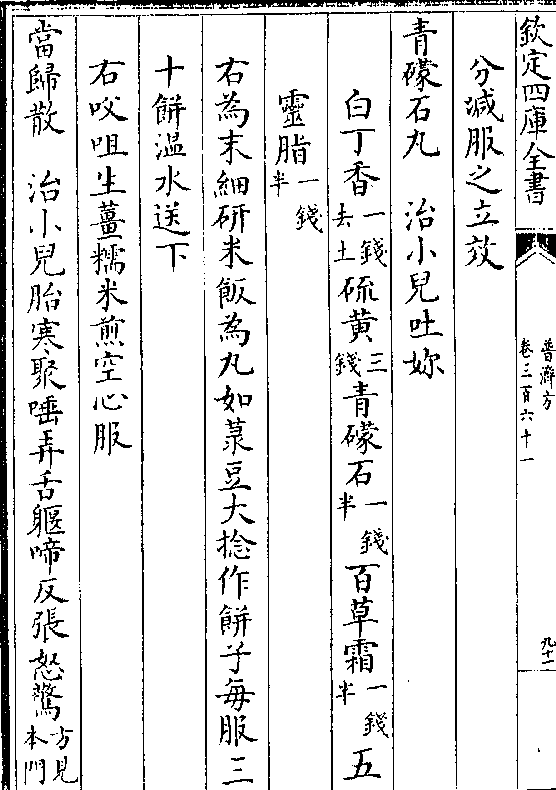 欽定四庫全書
普濟方
卷三百六十一
九十一
分減服之立效
青礞石丸　治小兒吐妳
白丁香一錢去土硫黄三錢青礞石一錢半百草霜一錢半五
靈脂一錢半
右為末細研米飯為丸如菉豆大捻作餅子每服三
十餅溫水送下
右㕮咀生薑糯米煎空心服
當歸散　治小兒胎寒聚唾弄舌軀啼反張怒驚方見本門